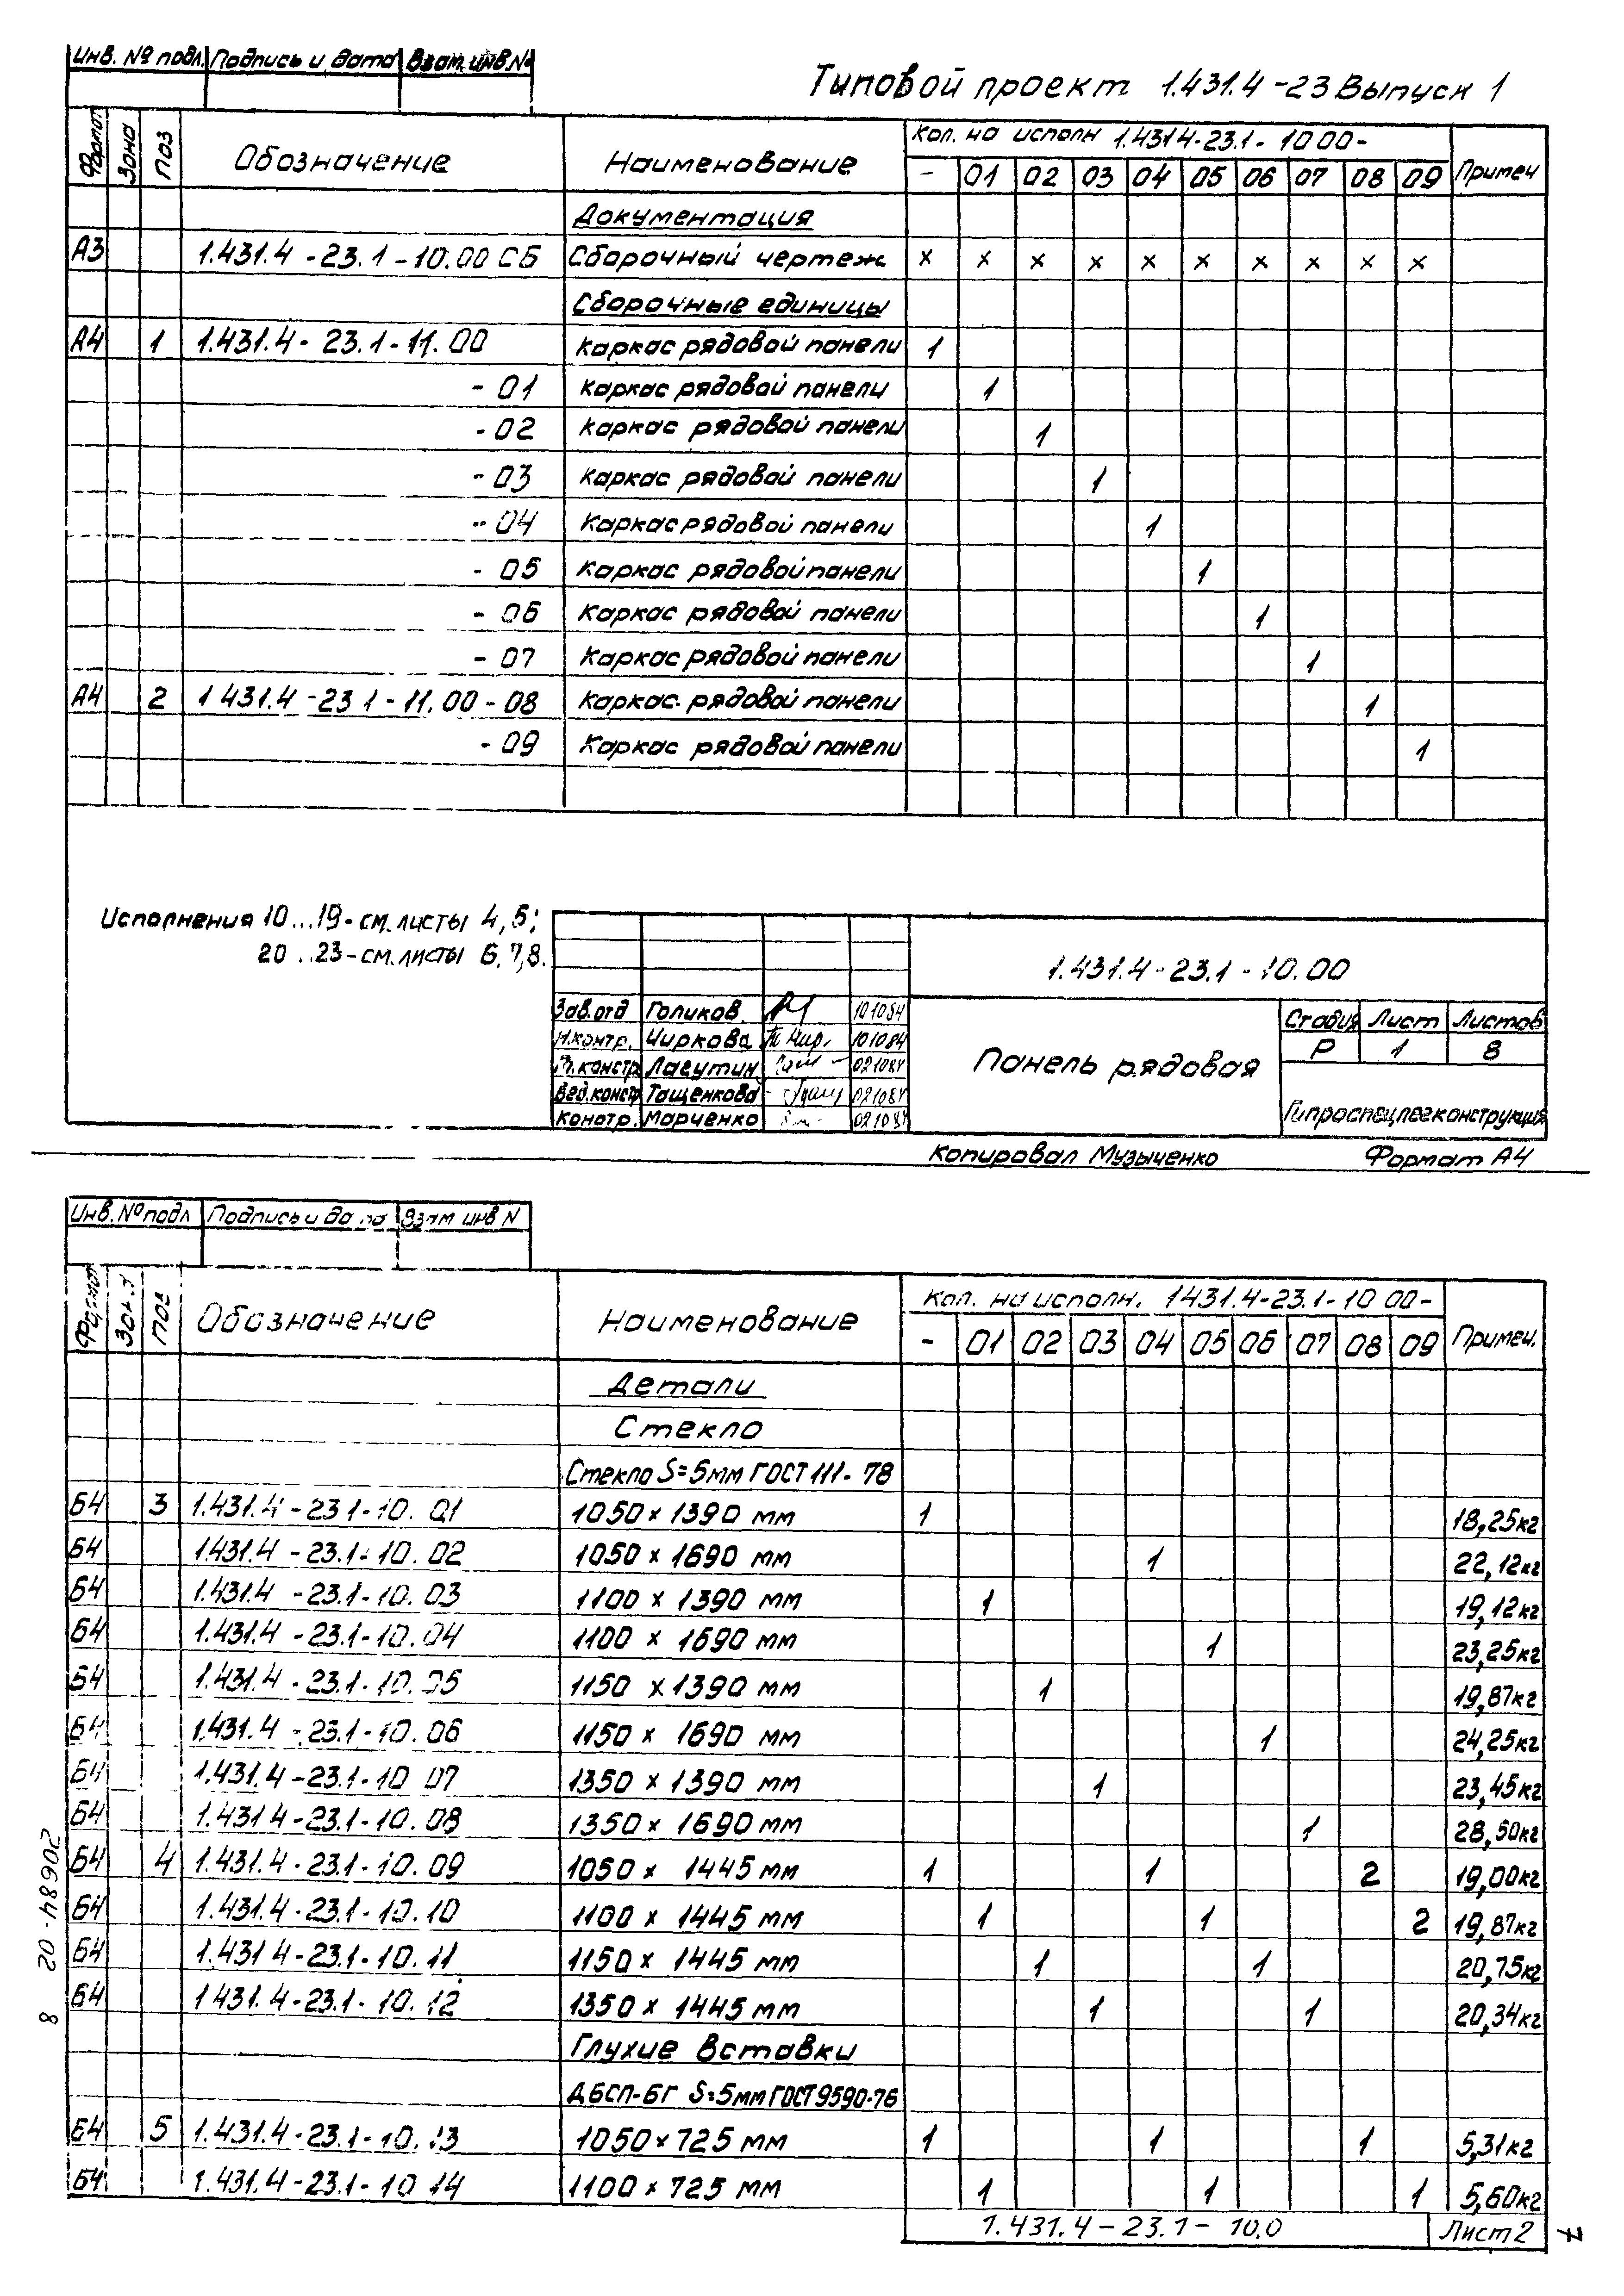 Инв. № подл. Подпись и дата Взам. инв. №
Типовой проект 1.431.4-23 Выпуск 1
Формат Зона Поз Обозначение Наименование Кол. на исполн 1.431.4-23.1-10 00- Примеч
- 01 02 03 04 05 06 07 08 09
Документация
А3 1.431.4-23.1-10.00 СБ Сборочный чертеж x x x x x x x x x x
Сборочные единицы
А4 1 1.431.4-23.1-11.00 Каркас рядовой панели 1
-01 Каркас рядовой панели 1
-02 Каркас рядовой панели 1
-03 Каркас рядовой панели 1
-04 Каркас рядовой панели 1
-05 Каркас рядовой панели 1
-06 Каркас рядовой панели 1
-07 Каркас рядовой панели 1
А4 2 1 431.4-23 1-11.00-08 Каркас рядовой панели 1
-09 Каркас рядовой панели 1
Исполнения 10...19-см. листы 4,5;
20..23-см. листы 6,7,8.
1.431.4-23.1-10.00
Зав.отд Голиков. 101084
Н.контр. Чиркова 101084
Гл.констр Лагутин 021084
Вед.констр Тащенкова 021084
Констр. Марченко 021084
Панель рядовая
Стадия Лист Листов
Р 1 8
Гипроспецлегконструкция
Копировал Музыченко Формат А4
Инв. № подл Подпись и дата Взам инв N
Формат Зона Поз Обозначение Наименование Кол. на исполн. 1431.4-23.1-10 00- Примеч.
- 01 02 03 04 05 06 07 08 09
Детали
Стекло
Стекло S=5мм ГОСТ 111-78
Б4 3 1.431.4-23 1-10.01 1050 x 1390 мм 1 18,25кг
Б4 1.431.4-23.1-10.02 1050 x 1690 мм 1 22,12кг
Б4 1.431.4-23.1-10.03 1100 x 1390 мм 1 19,12кг
Б4 1.431.4-23.1-10.04 1100 x 1690 мм 1 23,25кг
Б4 1.431.4-23.1-10.05 1150 x 1390 мм 1 19,87кг
Б4 1.431.4-23.1-10.06 1150 x 1690 мм 1 24,25кг
Б4 1.431.4-23.1-10 07 1350 x 1390 мм 1 23,45кг
Б4 1.431 4-23.1-10.08 1350 x 1690 мм 1 28,50кг
Б4 4 1.431.4-23.1-10.09 1050 x 1445 мм 1 1 2 19,00кг
Б4 1.431.4-23.1-10.10 1100 x 1445 мм 1 1 2 19,87кг
Б4 1.431 4-23.1-10.11 1150 x 1445 мм 1 1 20,75кг
Б4 1 431.4-23.1-10.12 1350 x 1445 мм 1 1 20,34кг
Глухие вставки
ДБСП-БГ S=5мм ГОСТ 9590-76
Б4 5 1.431.4-23.1-10.13 1050 x 725 мм 1 1 1 5,31кг
Б4 1.431.4-23.1-10 14 1100 x 725 мм 1 1 1 5,60кг
1.431.4-23.1-10.0 Лист 2
20684-02 8
7